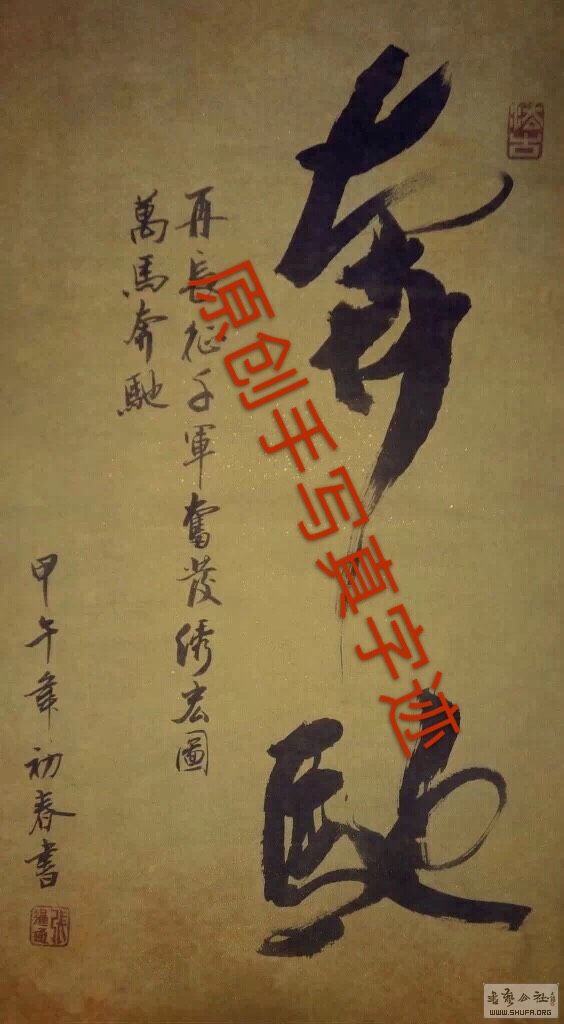 奔馳
再長征千軍奮發绣宏圖
萬馬奔馳
甲午年初春書
原创手写真字迹
WWW.SHUFA.ORG